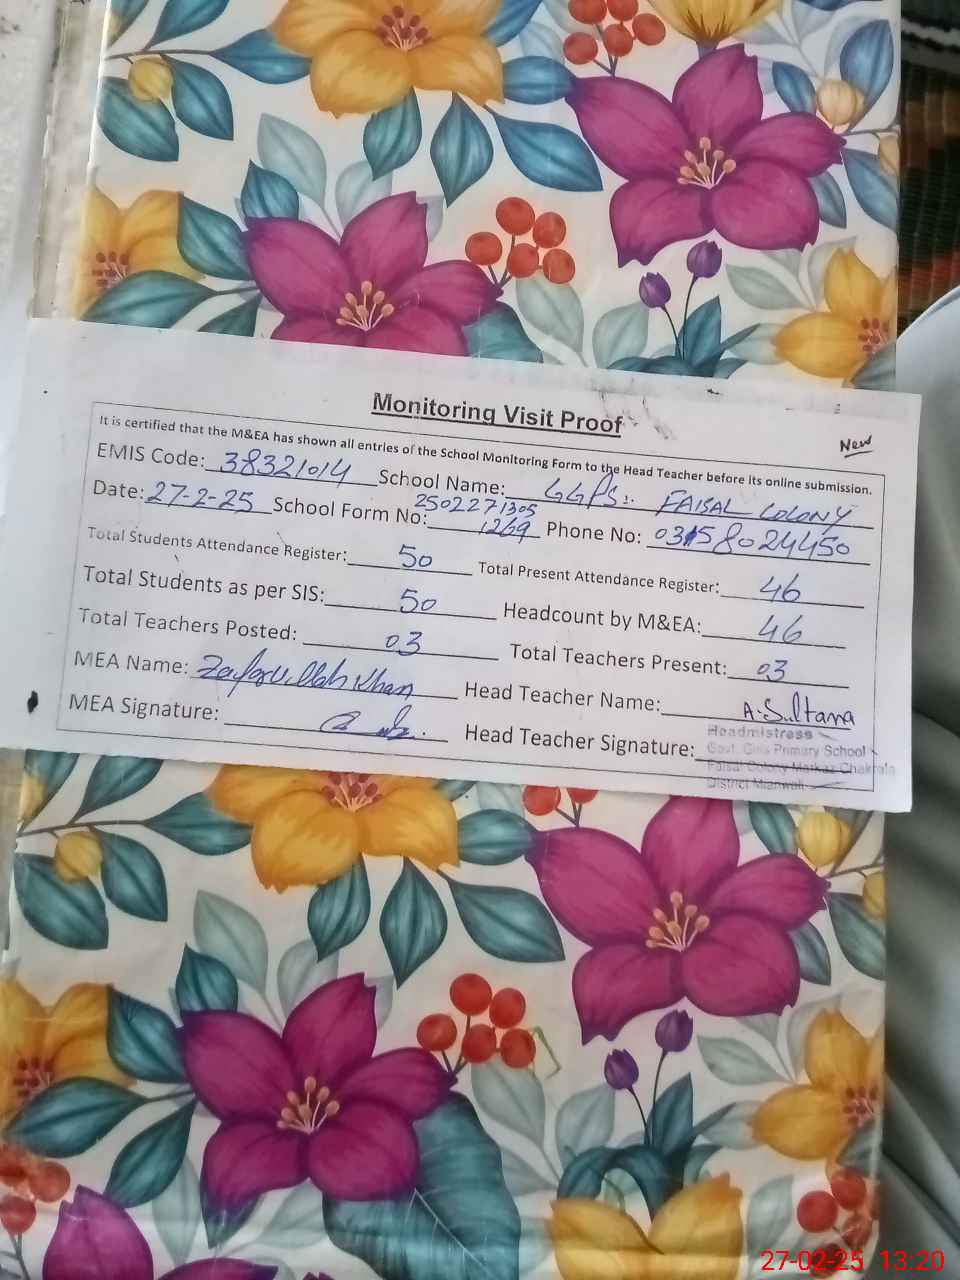 Monitoring Visit Proof
New
It is certified that the M&EA has shown all entries of the School Monitoring Form to the Head Teacher before its online submission.
EMIS Code: 38321014 School Name: GGPS: FAISAL COLONY
Date: 27-2-25 School Form No: 2502271305 1269 Phone No: 03158024450
Total Students Attendance Register: 50 Total Present Attendance Register: 46
Total Students as per SIS: 50 Headcount by M&EA: 46
Total Teachers Posted: 03 Total Teachers Present: 03
MEA Name: Zafarullah Khan Head Teacher Name: A.Sultana
MEA Signature: Head Teacher Signature:
Headmistress
Govt. Girls Primary School
Faisal Colony Markaz Chakrala
District Mianwali
27-02-25 13:20